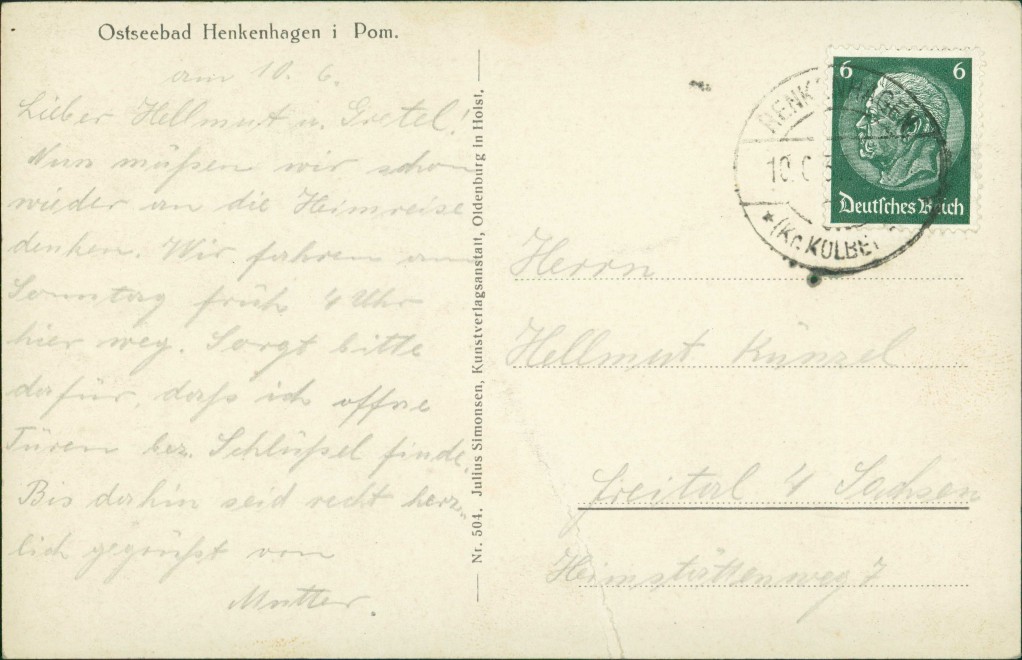 Ostseebad Henkenhagen i Pom.
am 10. 6.
Lieber Hellmut u. Gretel!
Nun müßen wir schon
wieder an die Heimreise
denken. Wir fahren am
Sonntag früh 4 Uhr
hier weg. Sorgt bitte
dafür, daß ich offne
Türen bez. Schlüßel finde.
Bis dahin seid recht herz-
lich gegrüßt von
Mutter.
Nr. 504. Julius Simonsen, Kunstverlagsanstalt, Oldenburg in Holst.
6 6
Deutsches Reich
HENKENHAGEN
10. 6. 3
(Kr. KOLBE
Herrn
Hellmut Künzel
Freital 4 Sachsen
Heimstättenweg 7